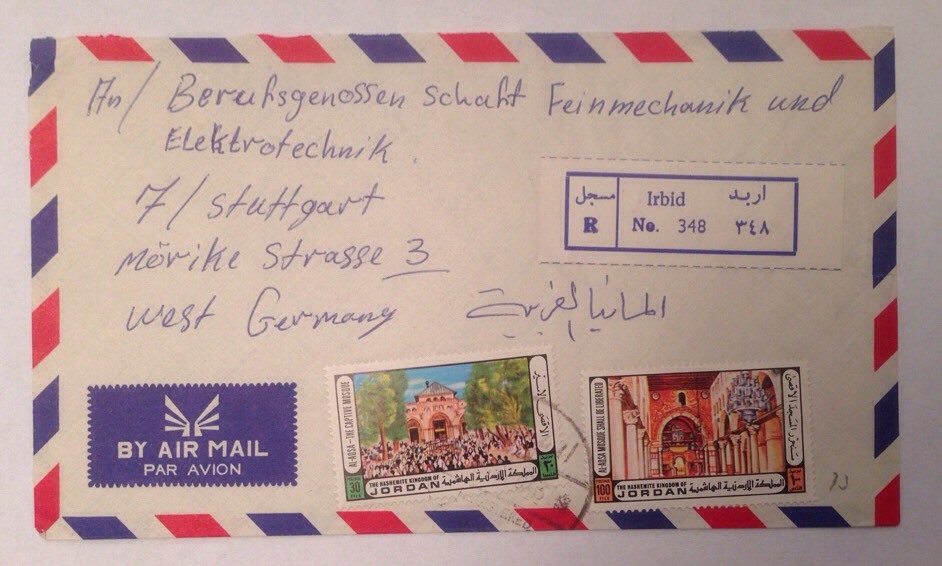 An/ Berufsgenossenschaft Feinmechanik und
Elektrotechnik
7/ Stuttgart
Mörike Strasse 3
West Germany
المانيا الغربية
مسجل
R
Irbid اربد
No. 348 ٣٤٨
BY AIR MAIL
PAR AVION
AL-AQSA-THE CAPTIVE MOSQUE
30
FILS
THE HASHEMITE KINGDOM OF
JORDAN
المملكة الاردنية الهاشمية
٣٠
AL-AQSA MOSQUE SHALL BE LIBERATED
100
FILS
THE HASHEMITE KINGDOM OF
JORDAN
المملكة الاردنية الهاشمية
١٠٠